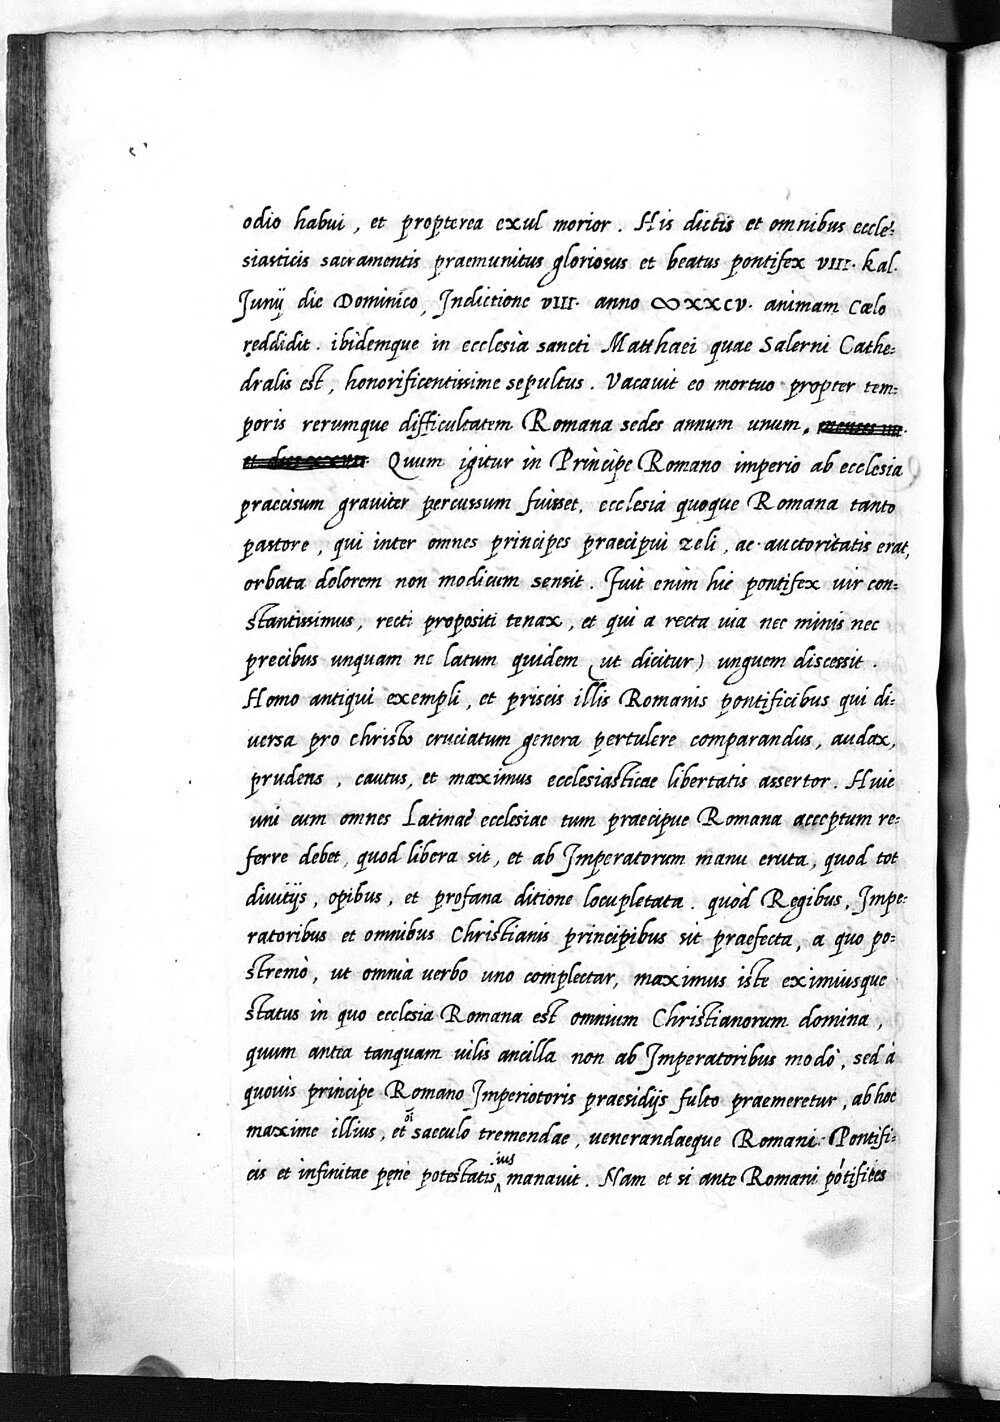 odio habui, et propterea exul morior. His dictis et omnibus eccle=
siasticis sacramentis praemunitus gloriosus et beatus pontifex VIII. kal.
Junij die Dominico, Indictione VIII. anno ∞XXCV. animam Cœlo
reddidit. ibidemque in ecclesia sancti Matthaei quae Salerni Cathe=
dralis est, honorificentissime sepultus. Vacauit eo mortuo propter tem=
poris rerumque difficultatem Romana sedes annum unum.
Quum igitur in Principe Romano imperio ab ecclesia
praecisum grauiter percussum fuisset, ecclesia quoque Romana tanto
pastore, qui inter omnes principes praecipui zeli, ac auctoritatis erat,
orbata dolorem non modicum sensit. Fuit enim hic pontifex uir con=
stantissimus, recti propositi tenax, et qui a recta uia nec minis nec
precibus unquam ne latum quidem (ut dicitur) unguem discessit.
Homo antiqui exempli, et priscis illis Romanis pontificibus qui di=
versa pro christo cruciatum genera pertulere comparandus, audax,
prudens, cautus, et maximus ecclesiasticae libertatis assertor. Huic
uni cum omnes Latinae ecclesiae tum praecipue Romana acceptum re=
ferre debet, quod libera sit, et ab Imperatorum manu eruta, quod tot
diuitijs, opibus, et profana ditione locupletata. quòd Regibus, Impe=
ratoribus et omnibus Christianis principibus sit praefecta, a quo po=
stremò, ut omnia uerbo uno complectar, maximus iste eximiusque
status in quo ecclesia Romana est omnium Christianorum domina,
quum antea tanquam uilis ancilla non ab Imperatoribus modò, sed à
quouis principe Romano Imperiotoris praesidijs fulto praemeretur, ab hoc
maxime illius, et oī saeculo tremendae, uenerandaeque Romani Pontifi=
cis et infinitae penè potestatis ius manauit. Nam et si ante Romani pōtifices